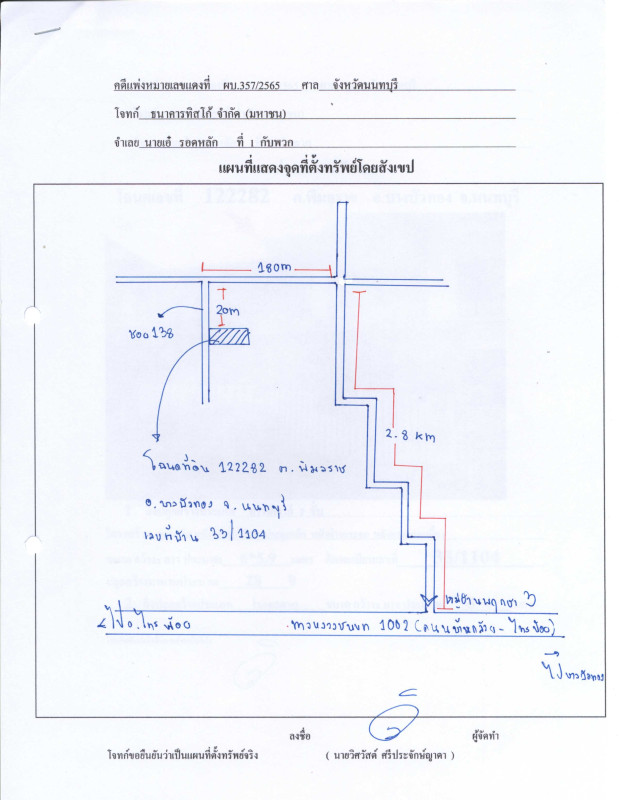 คดีแพ่งหมายเลขแดงที่ ผบ.357/2565 ศาล จังหวัดนนทบุรี
โจทก์ ธนาคารทิสโก้ จำกัด (มหาชน)
จำเลย นายเอ๋ รอดหลัก ที่ 1 กับพวก
แผนที่แสดงจุดที่ตั้งทรัพย์โดยสังเขป
180m
20m
ซอย138
2.8 km
โฉนดที่ดิน 122282 ต.พิมลราช
อ.บางบัวทอง จ.นนทบุรี
เลขที่บ้าน 33/1104
หมู่บ้านพฤกษา 3
ไป อ.ไทรน้อย
ทางหลวงชนบท 1002 (ถนนบ้านกล้วย - ไทรน้อย)
ไปบางบัวทอง
ลงชื่อ ผู้จัดทำ
โจทก์ขอยืนยันว่าเป็นแผนที่ตั้งทรัพย์จริง ( นายวิศวัสต์ ศรีประจักษ์ญาดา )